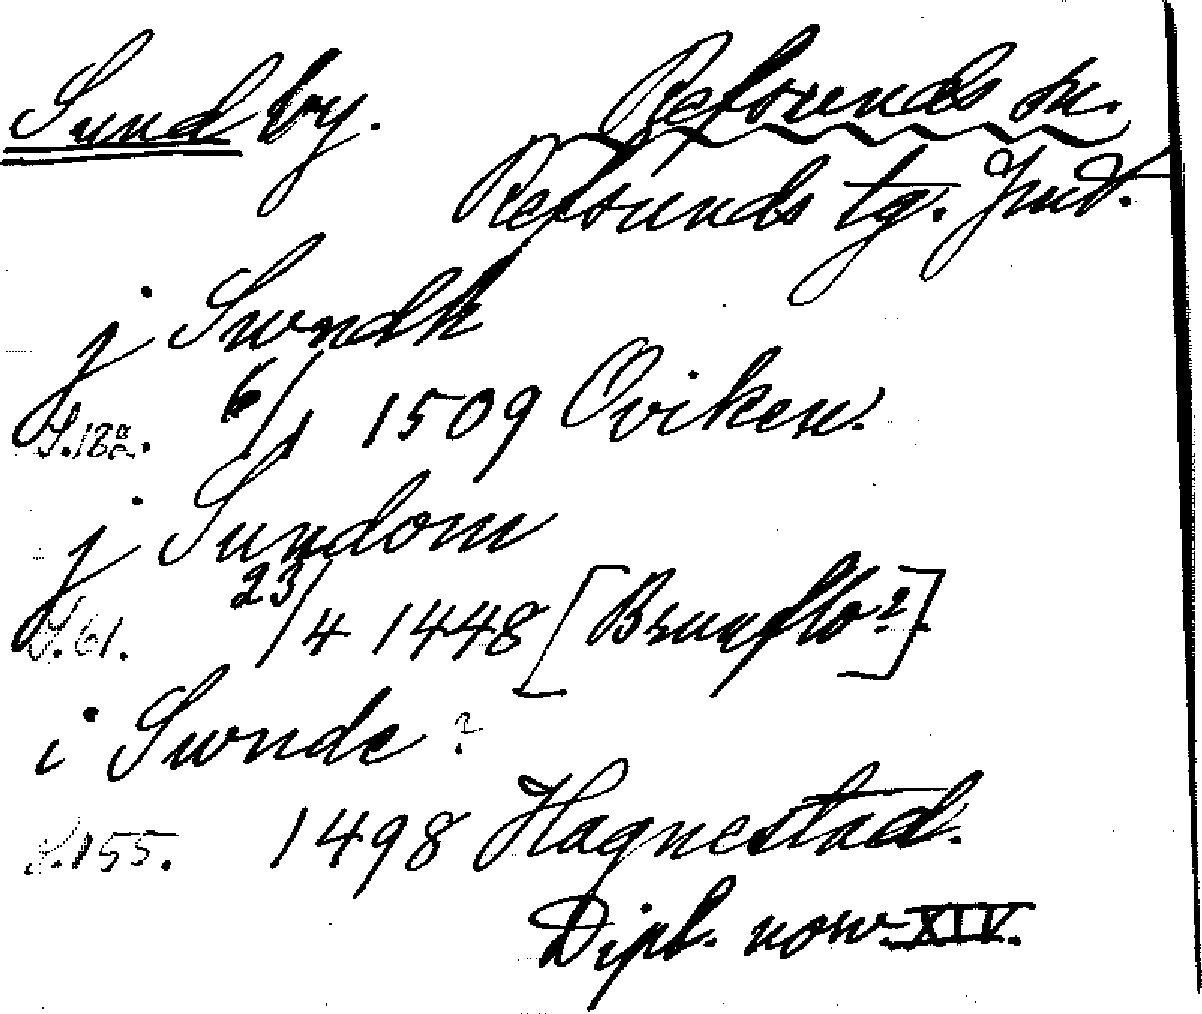 Sundby. Refsunds sn.
Refsunds tg. Jmtl.
j Swndh
S. 18a. 6/1 1509 Oviken.
j Sundom
S. 61. 23/4 1448 [Brunflo?].
i Swnde?
S. 155. 1498 Hagnestad.
Dipl. norv. XIV.